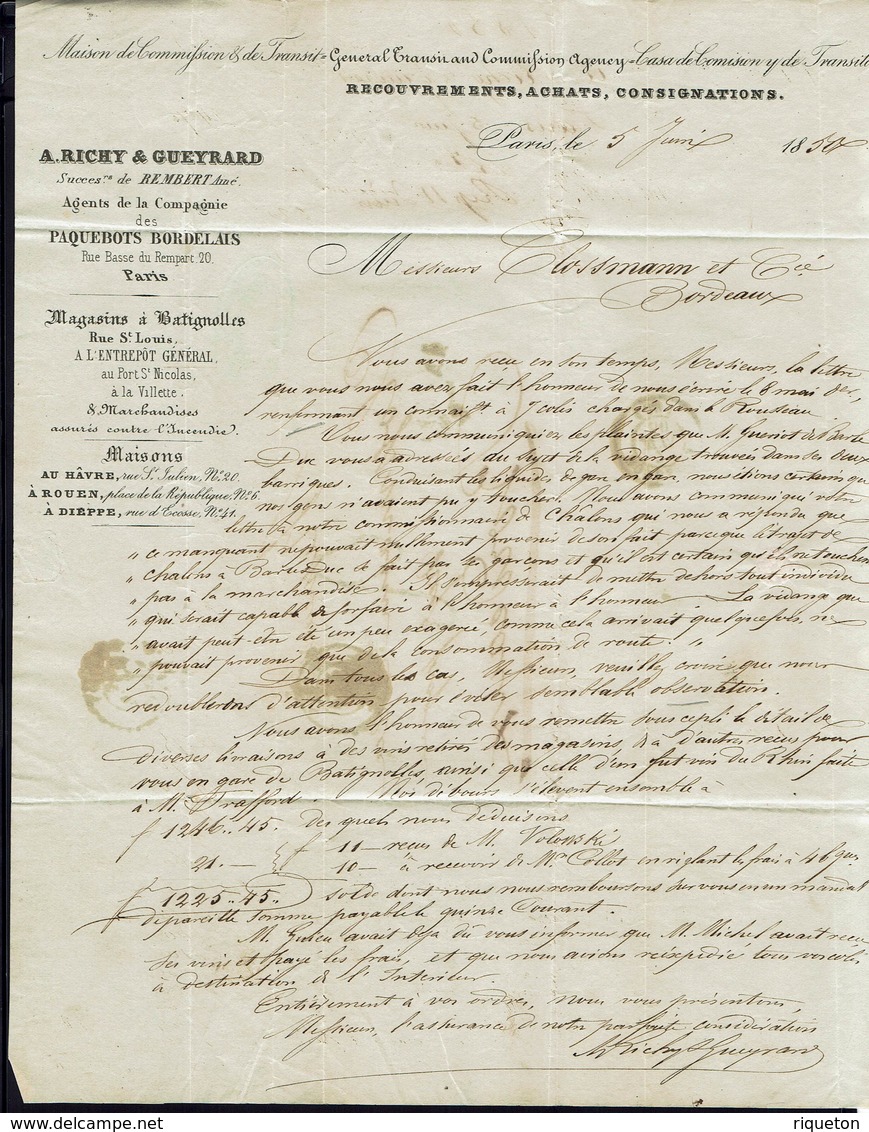 Maison de Commission & de Transit = General Transit and Commission Agency = Casa de Comision y de Transito
RECOUVREMENTS, ACHATS, CONSIGNATIONS.
Paris, le 5 Juin 1850
A. RICHY & GUEYRARD
Succes.rs de REMBERT Ainé.
Agents de la Compagnie
des
PAQUEBOTS BORDELAIS
Rue Basse du Rempart 20.
Paris
Magasins à Batignolles
Rue St Louis,
A L'ENTREPÔT GÉNÉRAL,
au Port St Nicolas,
à la Villette.
& Marchandises
assurés contre l'Incendie.
Maisons
AU HÂVRE, rue St Julien, No 20.
À ROUEN, place de la République No 6.
À DIEPPE, rue d'Ecosse, No 41.
Messieurs Clossmann et Cie
Bordeaux
Nous avons reçu en son temps, Messieurs, la lettre
que vous nous avez fait l'honneur de nous écrire le 8 mai der,
renfermant un connaist à 7 colis chargés dans le Rouseau
Vous nous communiquiez les plaintes que M. Gueriot de Bar le
Duc vous a adressées au sujet de la vidange trouvée dans ses deux
barriques. Conduisant les liquides de gare en gare, nous étions certains que
nos gens n'avaient pu y toucher. Nous avons communiqué votre
lettre à notre commissionnaire de Chalons qui nous a répondu que
" ce manquant ne pouvait nullement provenir de son fait parceque le trajet de
" Chalons à Bar le Duc se fait par ses garçons et qu'il est certain qu'ils ne touchent
" pas à la marchandise. Il s'empresserait de mettre dehors tout individu
" qui serait capable de forfaire à l'honneur à l'honneur La vidange que
" avait peut-être été un peu exagérée, comme cela arrivait quelquefois, ne
" pouvait provenir que de la consommation de route. "
Dans tous les cas, Messieurs, veuillez croire que nous
redoublerons d'attention pour éviter semblable observation.
Nous avons l'honneur de vous remettre sous ce pli le détail de
diverses livraisons à des vins retirés des magasins, & à d'autres reçus pour
vous en gare de Batignolles, ainsi que celle d'un fut vin du Rhin faite
à Mr Trafford. Nos débours s'élevent ensemble à
f 1246.. 45. des quels nous déduisons
21. — { f 11 — reçus de M. Volowski
10 — à recevoir de Mr Collot en réglant les frais à 46 que
f 1225.. 45.. Solde dont nous nous remboursons sur vous en un mandat
de pareille somme payable le quinze Courant.
M. avait déjà dû vous informer que M. Michel avait reçu
ses vins et payé les frais, et que nous avions réexpédié tous vos colis
à destination de l'Interieur.
Entièrement à vos ordres, nous vous présentons,
Messieurs, l'assurance de notre parfaite considération
A Richy & Gueyrard
riqueton